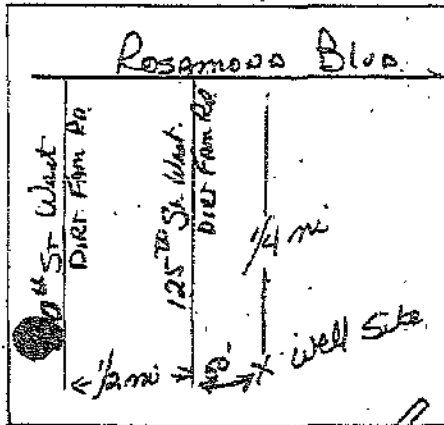 Rosamond Blvd.
th St West
Dirt Farm Rd.
125th St. West.
Dirt Farm Rd
1/4 mi
1/2 mi
0'
X Well Site